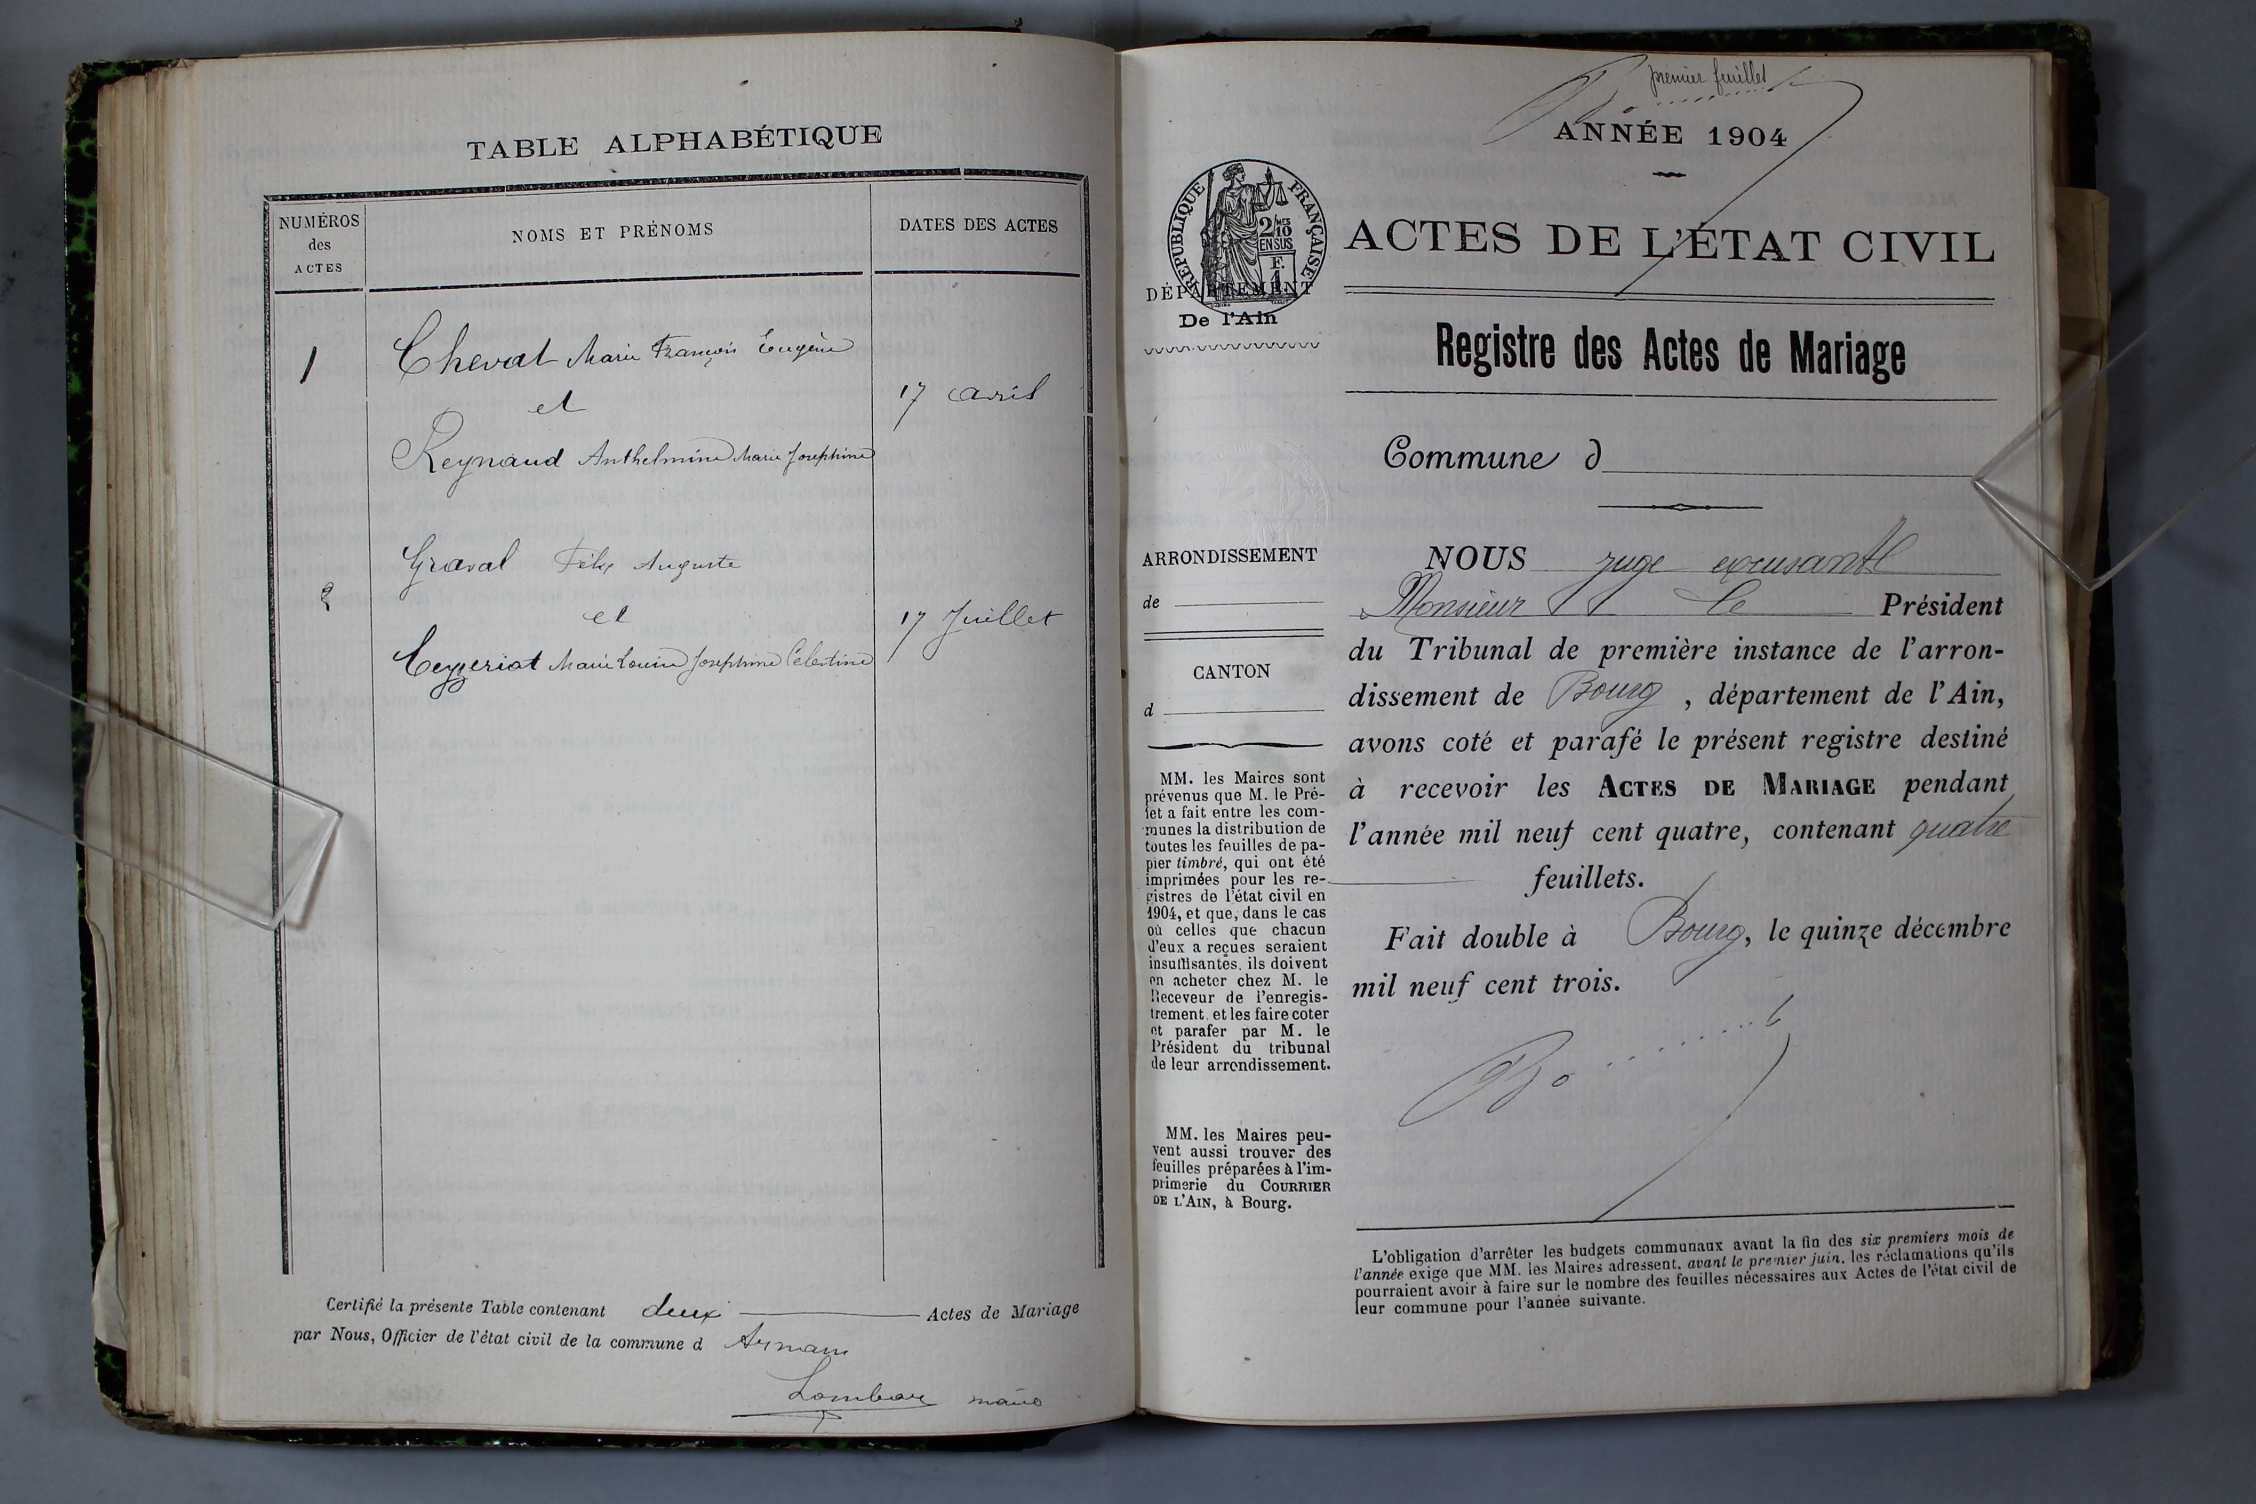 TABLE ALPHABÉTIQUE
NUMÉROS
des
ACTES
NOMS ET PRÉNOMS
DATES DES ACTES
1
Cheval Marie François Eugène
et
17 avril
Reynaud Anthelmine Marie Josephine
Graval Félix Auguste
2
et
17 Juillet
Ceyzeriat Marie Louise Josephine Celestine
Certifié la présente Table contenant deux Actes de Mariage
par Nous, Officier de l'état civil de la commune d
maire
premier feuillet
ANNÉE 1904
RÉPUBLIQUE FRANÇAISE
2/10 MES
EN SUS
F.
1
ACTES DE L'ÉTAT CIVIL
DÉPARTEMENT
De l'Ain
Registre des Actes de Mariage
Commune d
ARRONDISSEMENT
de
CANTON
d
MM. les Maires sont
prévenus que M. le Pré-
fet a fait entre les com-
munes la distribution de
toutes les feuilles de pa-
pier timbré, qui ont été
imprimées pour les re-
gistres de l'état civil en
1904, et que, dans le cas
où celles que chacun
d'eux a reçues seraient
insuffisantes, ils doivent
en acheter chez M. le
Receveur de l'enregis-
trement, et les faire coter
et parafer par M. le
Président du tribunal
de leur arrondissement.
MM. les Maires peu-
vent aussi trouver des
feuilles préparées à l'im-
primerie du COURRIER
DE L'AIN, à Bourg.
NOUS juge
Monsieur Le Président
du Tribunal de première instance de l'arron-
dissement de Bourg, département de l'Ain,
avons coté et parafé le présent registre destiné
à recevoir les ACTES DE MARIAGE pendant
l'année mil neuf cent quatre, contenant quatre
feuillets.
Fait double à Bourg, le quinze décembre
mil neuf cent trois.
L'obligation d'arrêter les budgets communaux avant la fin des six premiers mois de
l'année exige que MM. les Maires adressent, avant le premier juin, les réclamations qu'ils
pourraient avoir à faire sur le nombre des feuilles nécessaires aux Actes de l'état civil de
leur commune pour l'année suivante.